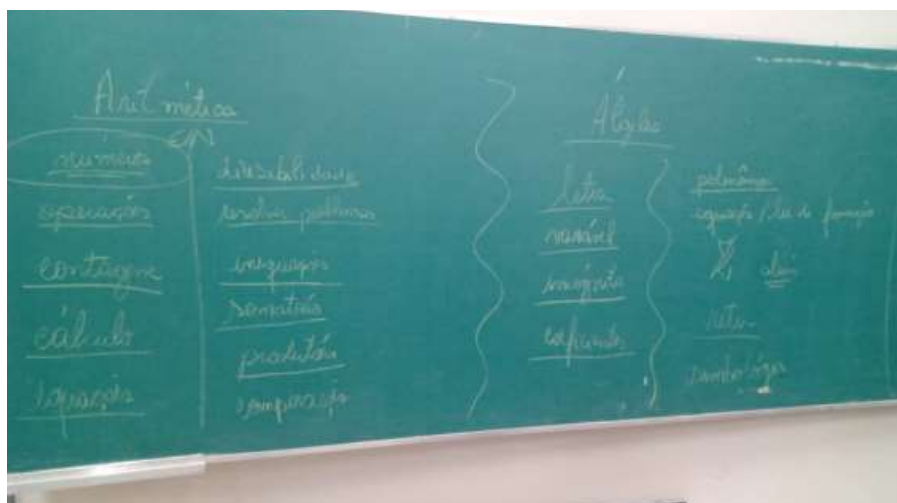 Aritmética
números
operações
contagem
cálculo
equação
divisibilidade
resolver problemas
inequações
somatório
produtório
comparação
Álgebra
letra
variável
incógnita
coeficientes
polinômio
equação / lei de formação
reta
simbologia